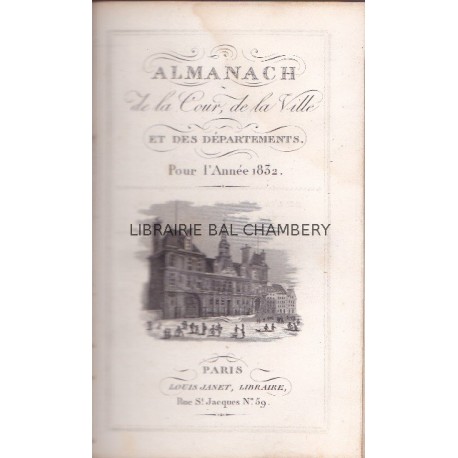 ALMANACH
de la Cour, de la Ville
ET DES DÉPARTEMENTS.
Pour l'Année 1832.
LIBRAIRIE BAL CHAMBERY
PARIS
LOUIS JANET, LIBRAIRE,
Rue St. Jacques No. 59.